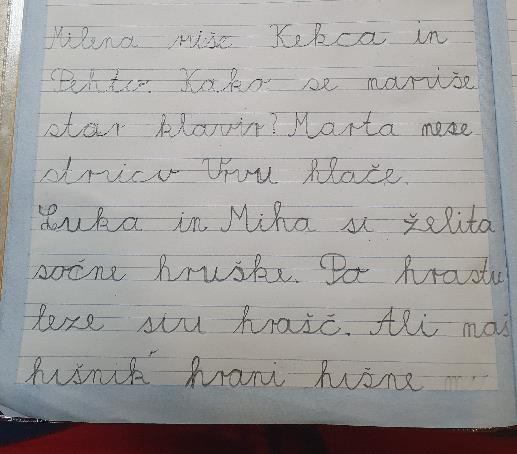 Milena riše Kekca in
Pehto. Kako se nariše
star klavir? Marta nese
stricu Vrvu hlače.
Luka in Miha si želita
sočne hruške. Po hrastu
leze siv hrašč. Ali naš
hišnik hrani hišne